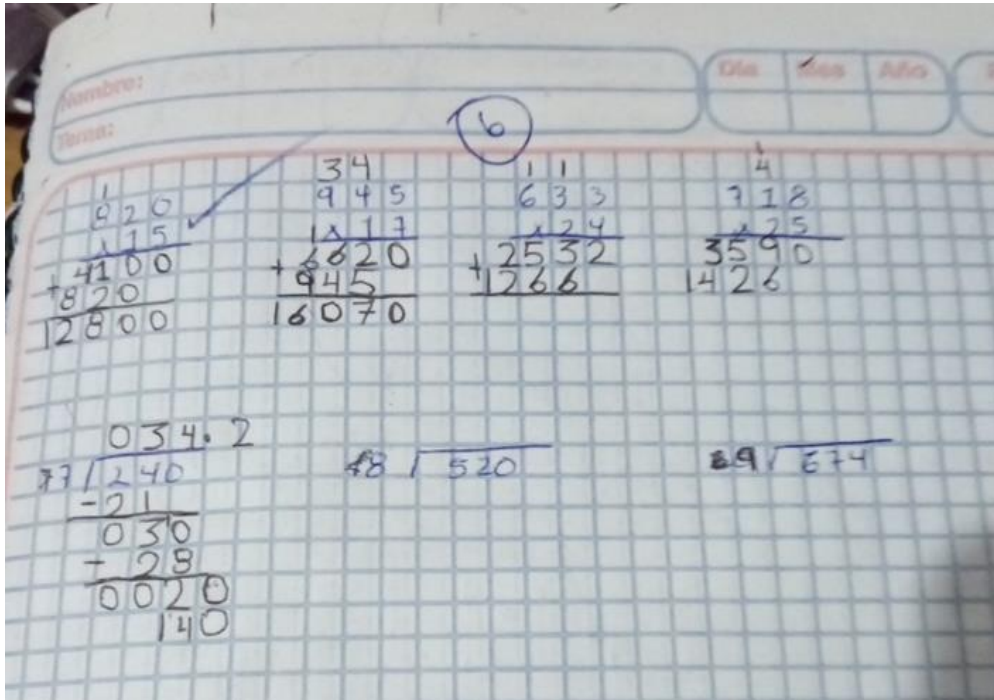 Nombre:
Tema:
Día Mes Año
6
1
820
x 15
+ 4100
820
12800
34
945
x 17
1
6620
+ 945
16070
1 1
633
x 24
2532
+ 1266
4
718
x 25
3590
1426
034.2
7 240
- 21
030
- 28
0020
140
8 520
9 674